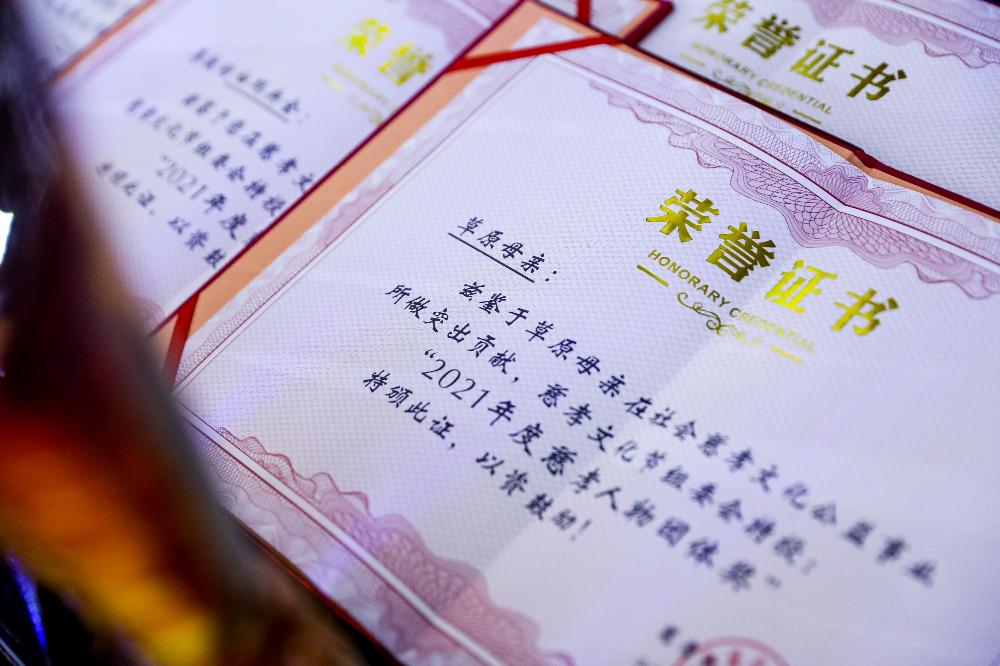 荣誉证书
HONORARY CREDENTIAL
草原母亲：
兹鉴于草原母亲在社会慈孝文化公益事业
所做突出贡献，慈孝文化节组委会特授：
“2021年度慈孝人物团体奖”
特颁此证，以资鼓励！
荣誉证书
HONORARY CREDENTIAL
荣誉
文化节组委会特授
“2021年度
此证，以资鼓